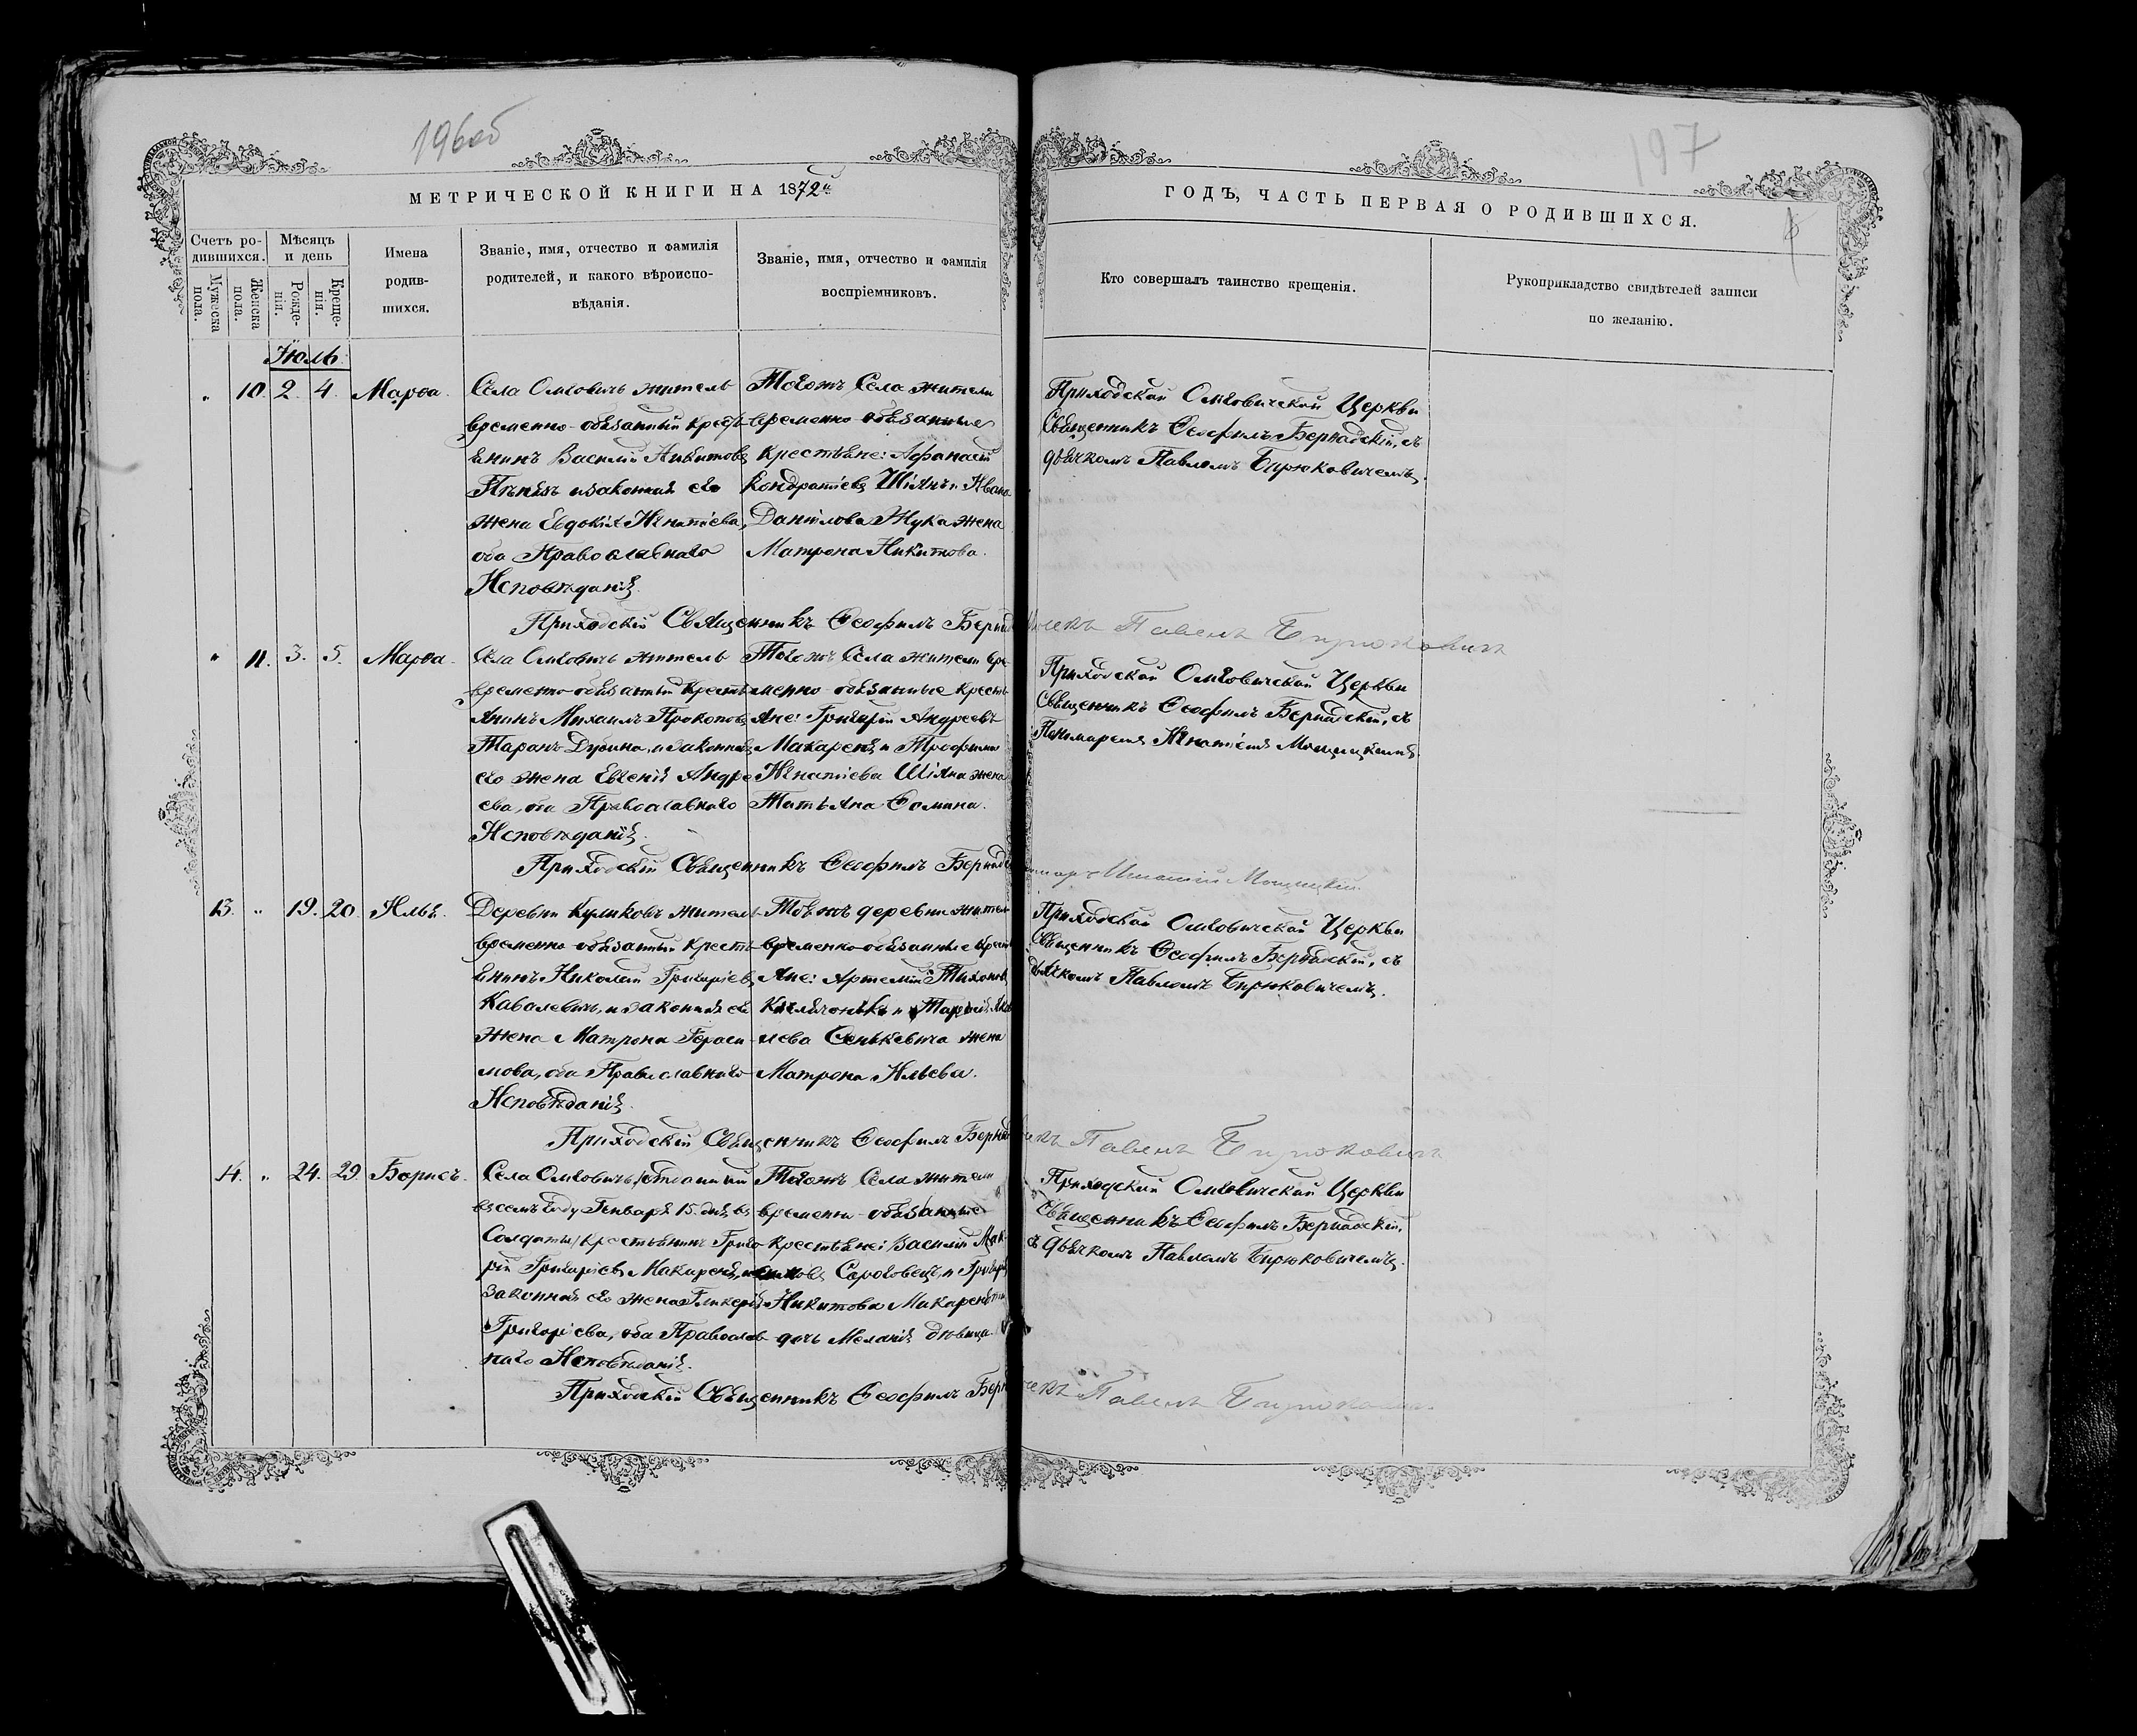 196об
197
МЕТРИЧЕСКОЙ КНИГИ НА 1872й
ГОДЪ, ЧАСТЬ ПЕРВАЯ О РОДИВШИХСЯ.
Счетъ ро-
дившихся.
Мужеска
пола.
Женска
пола.
Мѣсяцъ
и день
Рожде-
нія.
Креще-
нія.
Имена
родив-
шихся.
Званіе, имя, отчество и фамилія
родителей, и какого вѣроиспо-
вѣданія.
Званіе, имя, отчество и фамилія
воспріемниковъ.
Кто совершалъ таинство крещенія.
Рукоприкладство свидѣтелей записи
по желанію.
Іюль
" 10. 2. 4. Марѳа.
Села Омговичъ житель
временно-обязанный кресть
янинъ Василій Никитовъ
и законная его
жена Евдокія Игнатіева,
оба Православнаго
Исповѣданія.
Тогожъ Села жители
временно-обязанные
крестьяне: Афанасій
Кондратіевъ Шіянъ и Ивана
Данілова Жука жена
Матрона Никитова.
Приходской Омговичской Церкви
Священникъ Ѳеофилъ Бернадскій, съ
дьячкомъ Павломъ Бирюковичемъ.
Приходскій Священникъ Ѳеофилъ Бернад
Павелъ Бирюковичъ
" 11. 3. 5. Марѳа.
Села Омговичъ житель
временно-обязанный кресть
янинъ Михаилъ Прокоповъ
Таранъ Дубина, и законная
его жена Евгенія Андре
ева, оба Православнаго
Исповѣданія.
Тогожъ Села жители вре-
менно-обязанные кресть
яне: Григорій Андреевъ
Макареня и Трофима
Игнатіева Шіяна жена
Татьяна Ѳомина.
Приходской Омговичской Церкви
Священникъ Ѳеофилъ Бернадскій, съ
Пономаремъ Игнатіемъ Мощицкимъ.
Приходскій Священникъ Ѳеофилъ Бернадс
Игнатій Мощицкій
13. " 19. 20. Илья.
Деревни Куликовъ житель
временно-обязанный кресть
янинъ Николай Григоріевъ
Кавалевичъ, и законная его
жена Матрона Гераси
мова, оба Православнаго
Исповѣданія.
Тойжъ деревни жители
временно-обязанные кресть
яне: Артемій Тихоновъ
лева Сенькевича жена
Матрона Ильева.
Приходской Омговичской Церкви
Священникъ Ѳеофилъ Бернадскій, съ
дьячкомъ Павломъ Бирюковичемъ.
Приходскій Священникъ Ѳеофилъ Бернад
Павелъ Бирюковичъ
14. " 24. 29. Борисъ.
Села Омговичъ /отданный
въ семъ году Генваря 15. дня въ
Солдаты/ крестьянинъ Григо
рій Григоріевъ Макареня, и
законная его жена Гликерія
Григоріева, оба Православ
наго Исповѣданія.
Тогожъ Села жители
временно-обязанные
крестьяне: Василій
Никитова Макарени
дочь Меланія дѣвица
Приходской Омговичской Церкви
Священникъ Ѳеофилъ Бернадскій,
съ дьячкомъ Павломъ Бирюковичемъ.
Приходскій Священникъ Ѳеофилъ Берн
Павелъ Бирюковичъ